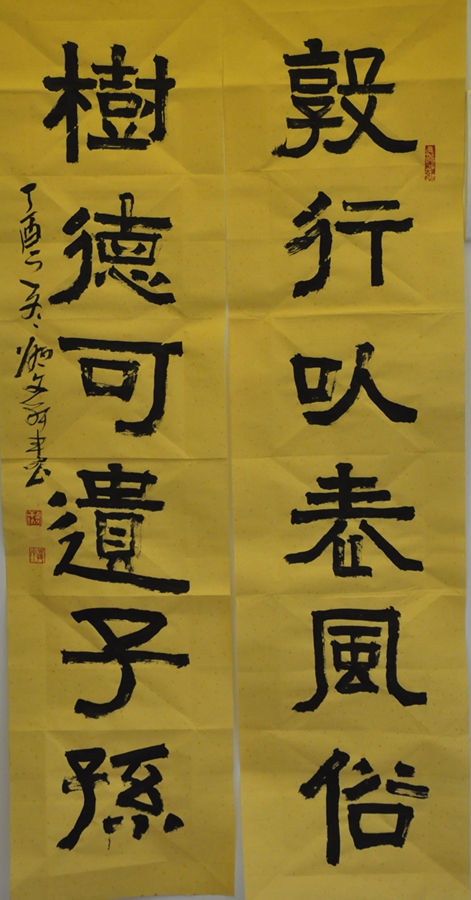 敦行以表風俗
樹德可遺子孫
丁酉之冬
書